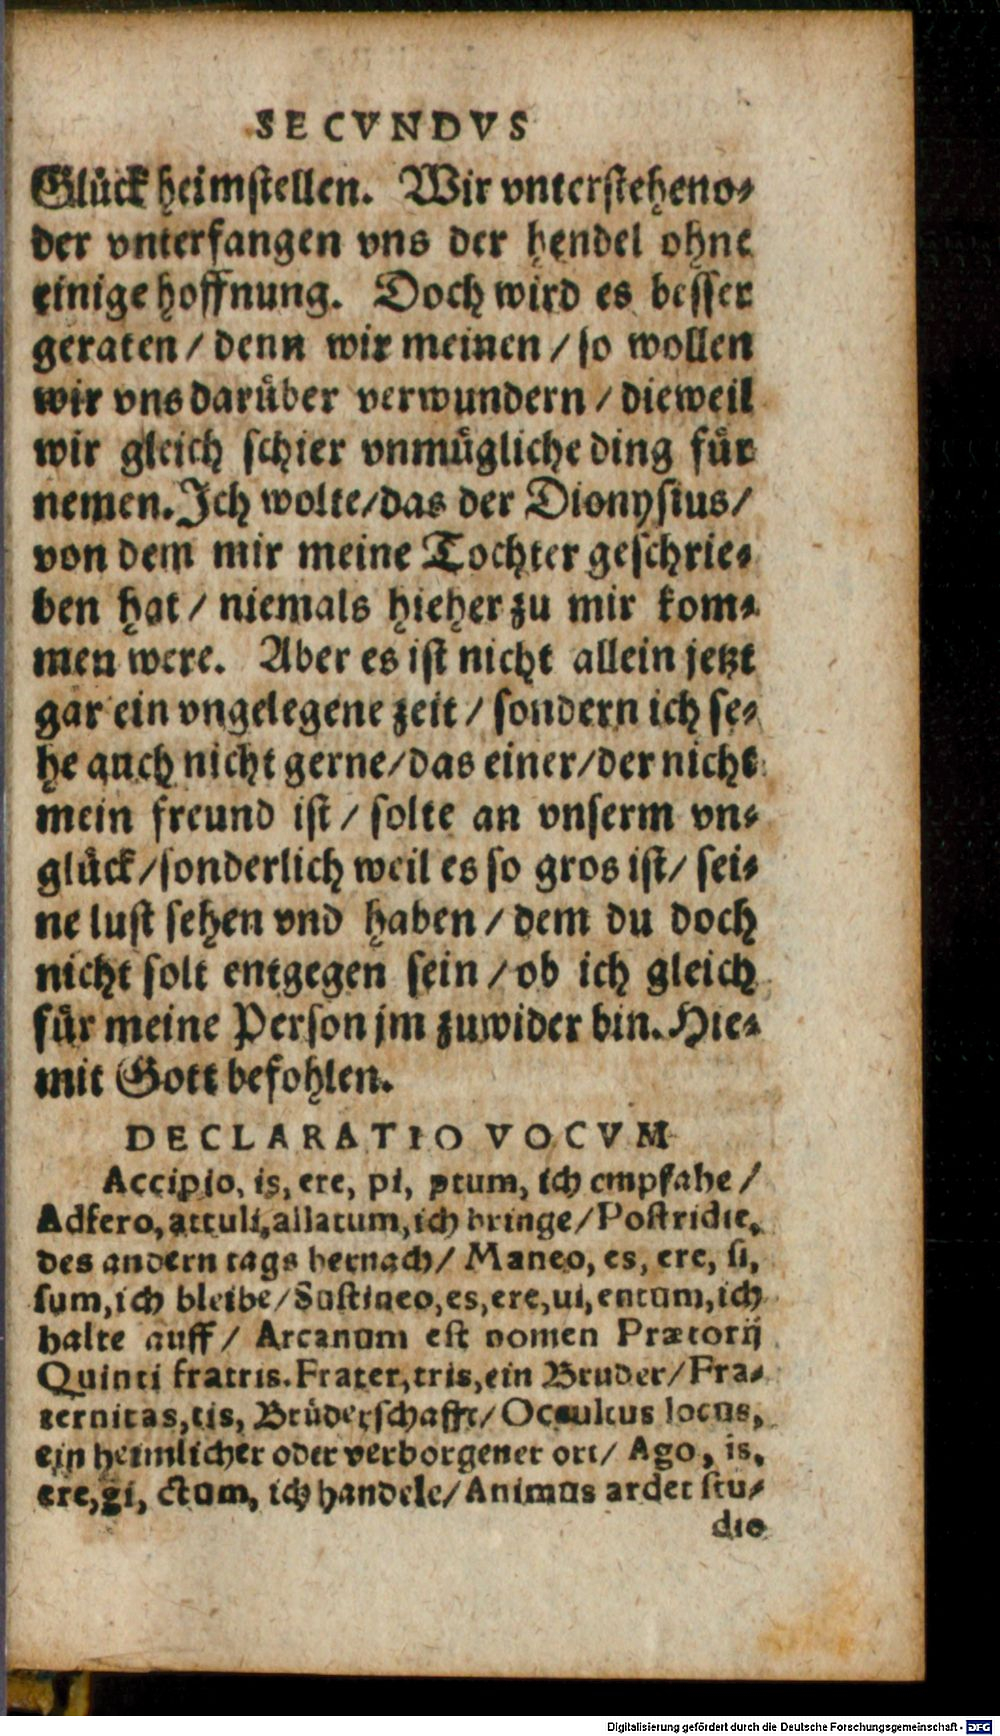 SECVNDVS
Glück heimstellen. Wir vnterstehen o-
der vnterfangen vns der hendel ohne
einige hoffnung. Doch wird es besser
geraten / denn wir meinen / so wollen
wir vns darüber verwundern / dieweil
wir gleich schier vnmügliche ding für
nemen. Ich wolte/das der Dionysius/
von dem mir meine Tochter geschrie-
ben hat / niemals hieher zu mir kom-
men were. Aber es ist nicht allein jetzt
gar ein vngelegene zeit / sondern ich se-
he auch nicht gerne/das einer/der nicht
mein freund ist / solte an vnserm vn-
glück/sonderlich weil es so gros ist/ sei-
ne lust sehen vnd haben / dem du doch
nicht solt entgegen sein / ob ich gleich
für meine Person jm zuwider bin. Hie-
mit Gott befohlen.
DECLARATIO VOCVM
Accipio, is, ere, pi, ptum, ich empfahe /
Adfero, attuli, allatum, ich bringe / Postridie,
des andern tags hernach/ Maneo, es, ere, si,
sum, ich bleibe / Sustineo, es, ere, ui, entum, ich
halte auff / Arcanum est nomen Prætorij
Quinti fratris. Frater, tris, ein Bruder / Fra-
ternitas, tis, Brüderschafft/ Occultus locus,
ein heimlicher oder verborgener ort/ Ago, is,
ere, gi, ctum, ich handele/ Animus ardet stu-
dio
Digitalisierung gefördert durch die Deutsche Forschungsgemeinschaft - DFG